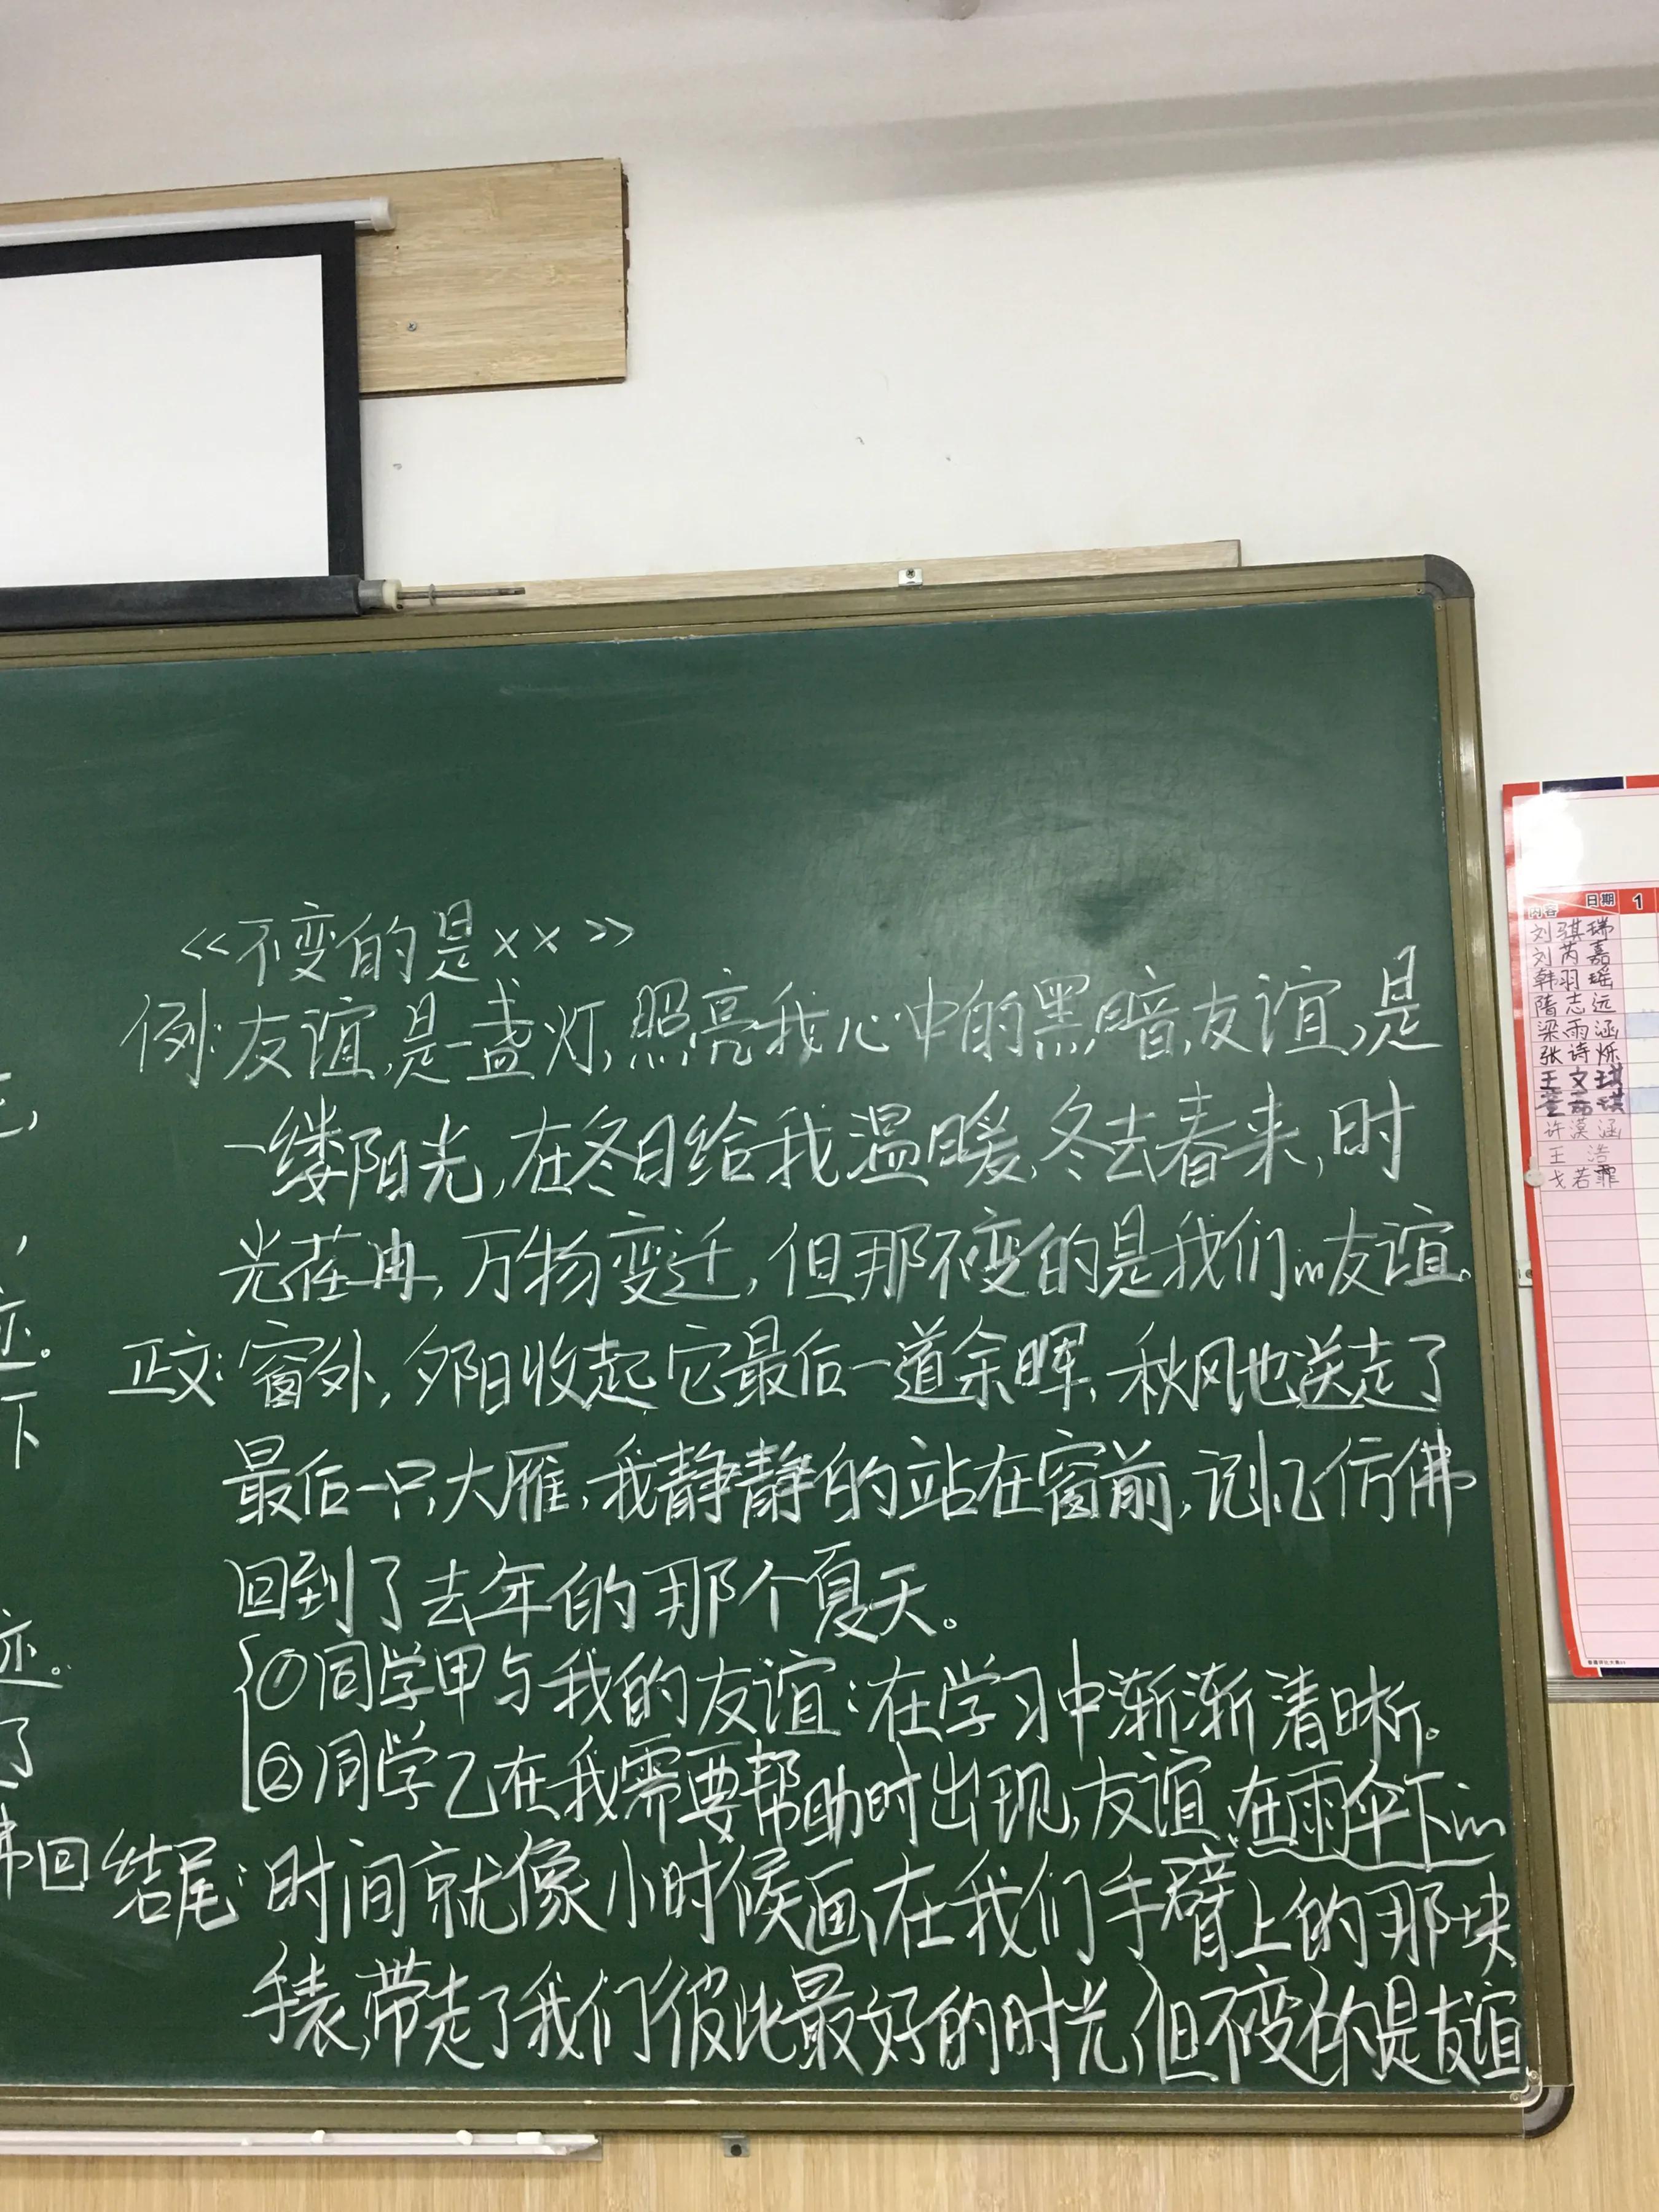 《不变的是××》
例:友谊,是一盏灯,照亮我心中的黑暗,友谊,是
一缕阳光,在冬日给我温暖,冬去春来,时
光荏冉,万物变迁,但那不变的是我们的友谊。
正文:窗外,夕阳收起它最后一道余晖,秋风也送走了
最后一只大雁,我静静的站在窗前,记忆仿佛
回到了去年的那个夏天。
①同学甲与我的友谊:在学习中渐渐清晰。
②同学乙在我需要帮助时出现,友谊在雨伞下…
结尾:时间就像小时候画在我们手臂上的那块
手表,带走了我们彼此最好的时光,但不变的是友谊
迹。
下
迹。
了
回
内容 日期 1
刘骐瑞
刘芮嘉
韩羽瑶
隋志远
梁雨涵
张诗烁
王文琪
许漠涵
王浩
戈若霏